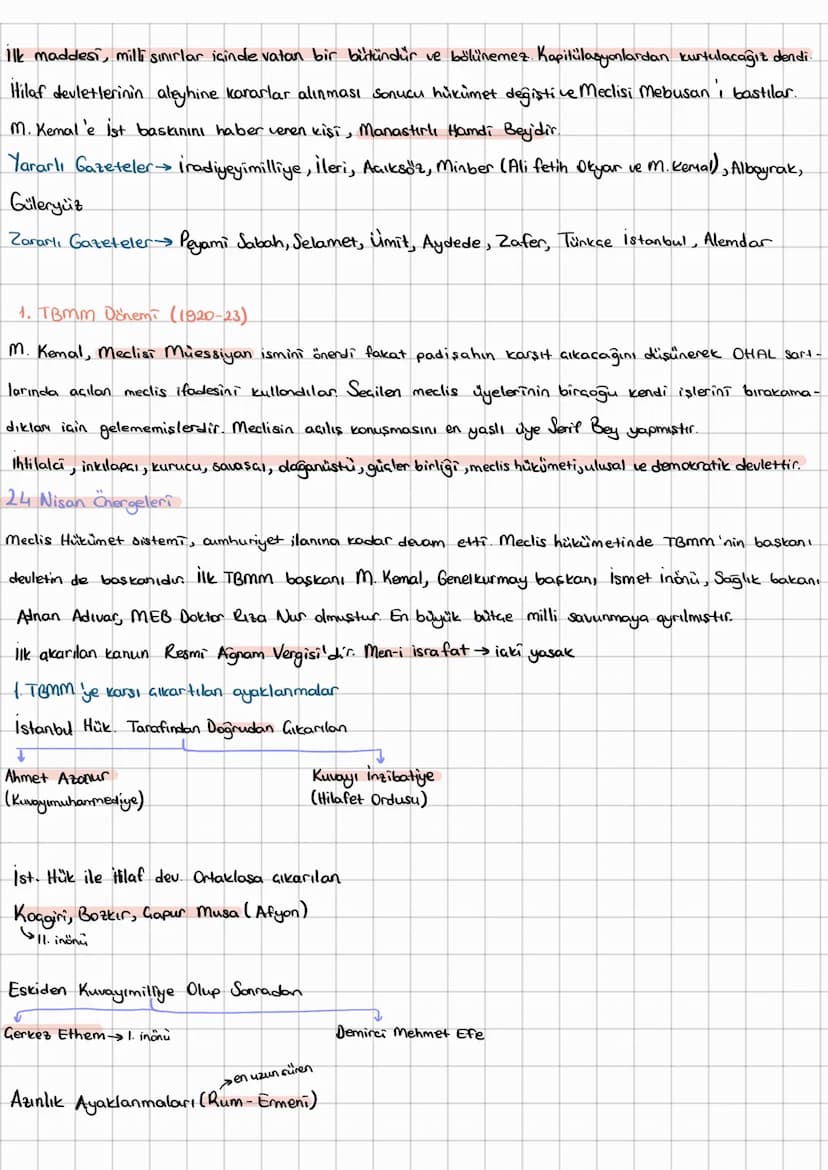 İlk maddesi, milli sınırlar içinde vatan bir bütündür ve bölünemez. Kapitülasyonlardan kurtulacağız dendi.
İtilaf devletlerinin aleyhine kararlar alınması sonucu hükümet değişti ve Meclisi Mebusan'ı bastılar.
M. Kemal'e İst baskınını haber veren kişi, Manastırlı Hamdi Bey'dir.
Yararlı Gazeteler → İradiyeyimilliye, İleri, Açıksöz, Minber (Ali fetih Okyar ve M. Kemal), Albayrak,
Güleryüz
Zararlı Gazeteler → Peyami Sabah, Selamet, Ümit, Aydede, Zafer, Türkçe İstanbul, Alemdar
1. TBMM Dönemi (1920-23)
M. Kemal, Meclisi Müessiyan ismini önerdi fakat padişahın karşıt çıkacağını düşünerek OHAL şart-
larında açılan meclis ifadesini kullandılar. Seçilen meclis üyelerinin birçoğu kendi işlerini bırakama-
dıkları için gelememişlerdir. Meclisin açılış konuşmasını en yaşlı üye Şerif Bey yapmıştır.
İhlilalci, inkılapçı, kurucu, savaşçı, olağanüstü, güçler birliği, meclis hükümeti, ulusal ve demokratik devlettir.
24 Nisan Önergeleri
Meclis Hükümet sistemi, cumhuriyet ilanına kadar devam etti. Meclis hükümetinde TBMM'nin başkanı
devletin de başkanıdır. İlk TBMM başkanı M. Kemal, Genelkurmay başkanı İsmet İnönü, Sağlık bakanı
Adnan Adıvar, MEB Doktor Rıza Nur olmuştur. En büyük bütçe milli savunmaya ayrılmıştır.
İlk çıkarılan kanun Resmi Ağnam Vergisi'dir. Men-i israfat → içki yasak
1. TBMM'ye karşı çıkartılan ayaklanmalar
İstanbul Hük. Tarafından Doğrudan Çıkarılan
Ahmet Azonur Kuvayı İnzibatiye
(Kuvayımuhammediye) (Hilafet Ordusu)
İst. Hük ile itilaf dev. Ortaklaşa çıkarılan
Koçgiri, Bozkır, Çapur Musa (Afyon)
II. inönü
Eskiden Kuvayımilliye Olup Sonradan
Çerkez Ethem → 1. inönü Demirci Mehmet Efe
→ en uzun süren
Azınlık Ayaklanmaları (Rum - Ermeni)